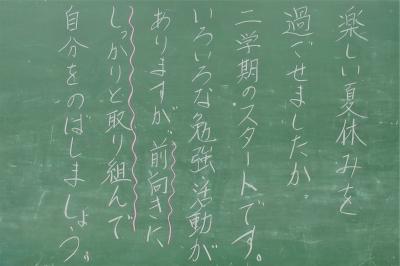 楽しい夏休みを
過ごせましたか。
二学期のスタートです。
いろいろな勉強・活動が
ありますが、前向きに、
しっかりと取り組んで
自分をのばしましょう。